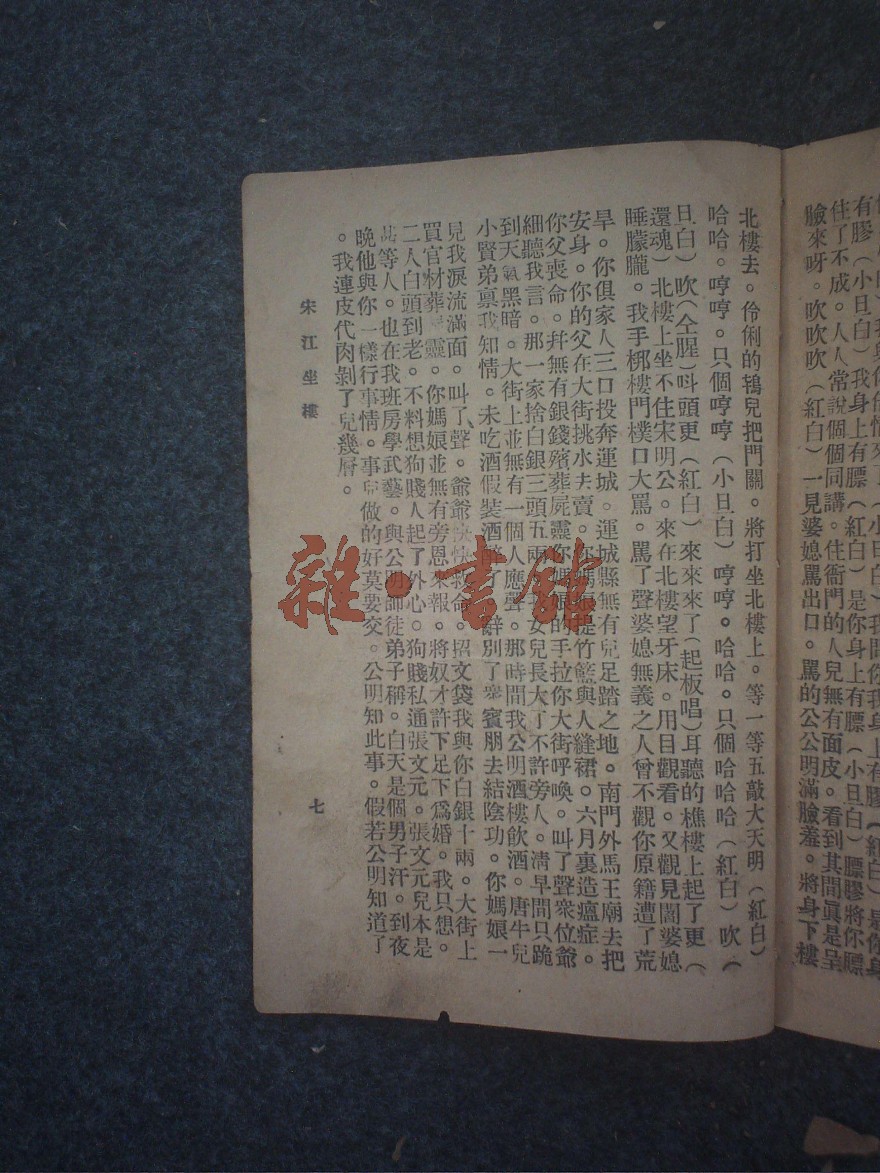 臉來呀。吹吹吹（紅白）一見婆媳罵出口。罵的公公明滿臉羞。將身下樓
北樓去。伶俐的鴇兒把門關。將打坐北樓上。等一等五敲大天明（紅白）
哈哈。哼哼。只個哼哼（小旦白）哼哼。哈哈。只個哈哈哈（紅白）吹（
旦白）吹（仝腥）呌頭更（紅白）來來來了（起板唱）耳聽的樵樓上起了更（
還魂）北樓上坐不住宋明公。來在北樓望牙床。用目觀看。又觀見閻婆媳
睡朦朧。我手梆樓門樸口大罵。罵了聲婆媳無義之人曾不觀你原籍遭了荒
旱。你俱家人三口投奔運城。運城縣無有兒足踏之地。南門外馬王廟去把
安身。你的父在大街挑水去賣。你媽娘提竹籃與人縫裙。六月裏造瘟症。
你父喪命。幷無有銀錢殯葬屍靈你媽娘的手拉你大街呼喚。叫了聲衆位爺
細聽我言。那一家捨白銀三頭五兩 女兒長大了不許旁人。淸早間只跪
到天氣黑暗。大街上並無有一個人應聲。那時間我公明酒樓飲酒。唐牛兒
小賢弟禀我知情。未吃酒假裝酒醉了 辭別了衆賓朋去結陰功。你媽娘一
見我淚流滿面。叫了聲。爺爺快快救命。招文袋我與你白銀十兩。大街上
買官材葬 靈。你媽娘並無有旁恩來報。將奴才許下足下爲婚。我只想。
二人白頭到老。不料想狗賤人起了外心。狗賤私通張文元。張文元兒本是
等人。也在我班房學武藝。與公明師徒弟子稱。白天是個男子汗。到夜
晚他與你一樣行事情。事兒做的好莫要交。公明知此事。假若公明知道了
。我連皮代肉剝了兒幾層。
宋江坐樓
七
雜·書館